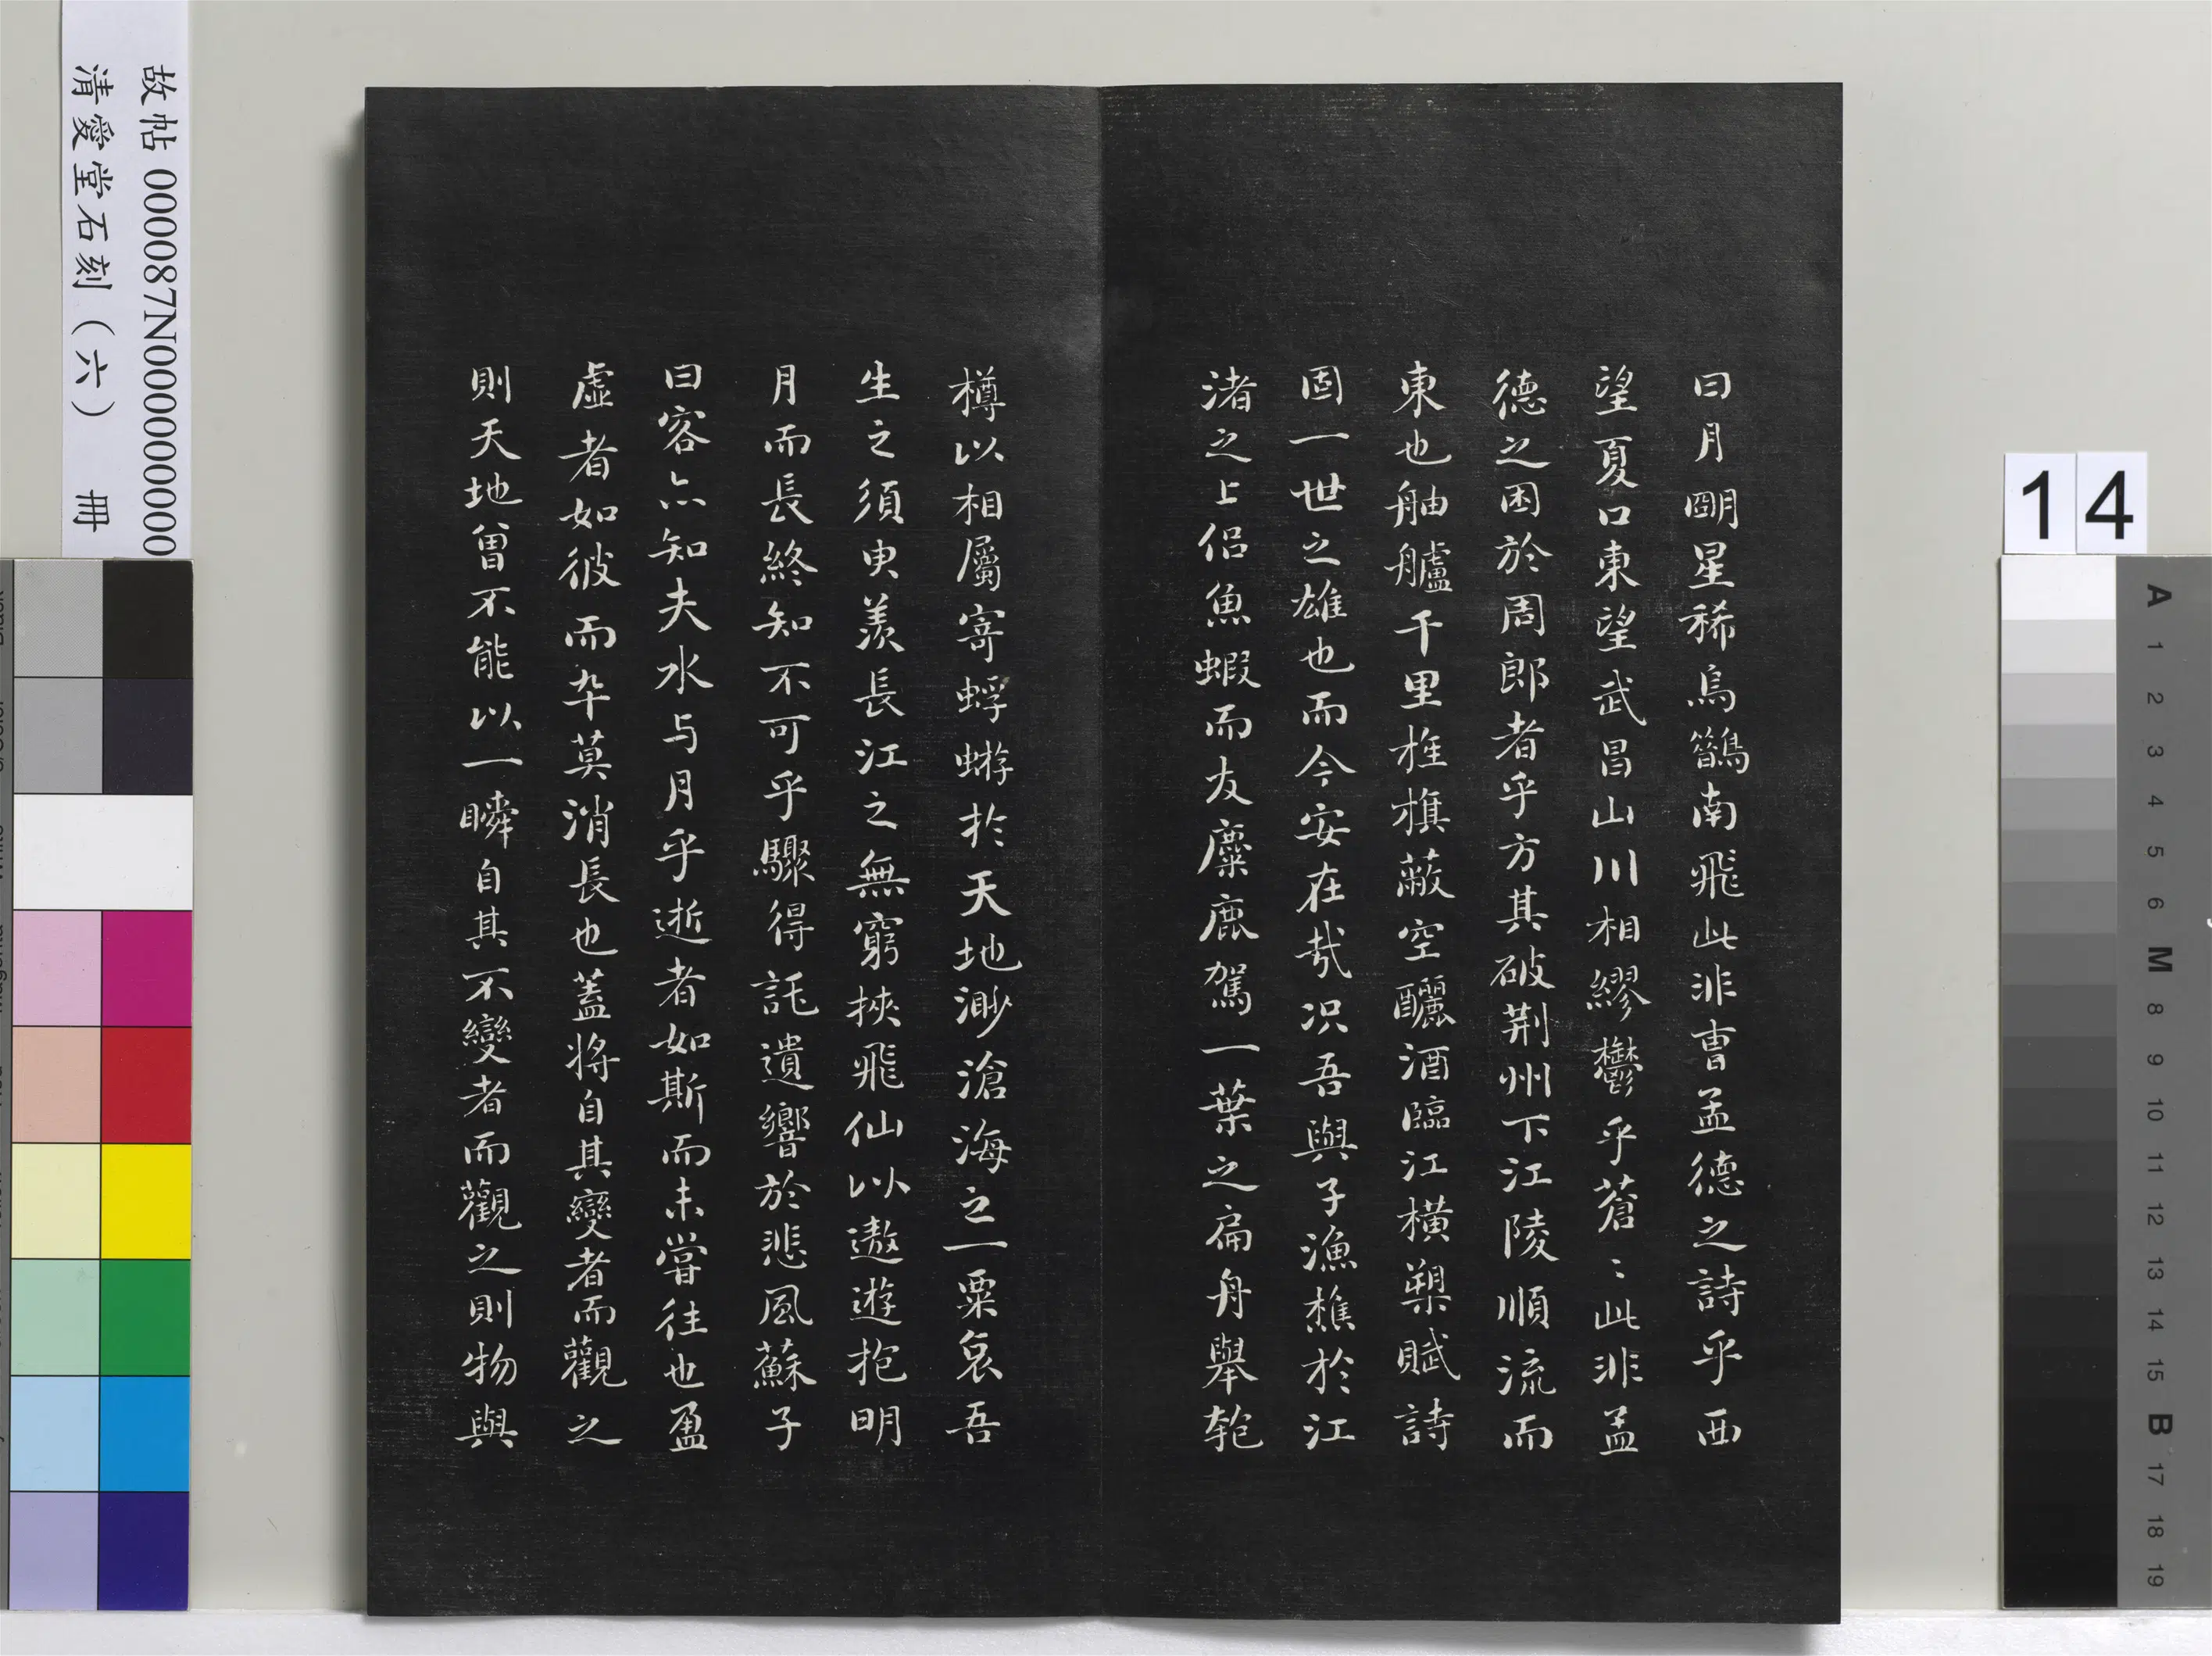 曰月朙星稀烏鵲南飛此非曹孟德之詩乎西
望夏口東望武昌山川相繆鬱乎蒼〻此非孟
德之困於周郎者乎方其破荆州下江陵順流而
東也舳艫千里旌旗蔽空釃酒臨江橫槊賦詩
固一世之雄也而今安在哉况吾與子漁樵於江
渚之上侣魚蝦而友麋鹿駕一葉之扁舟舉匏
樽以相屬寄蜉蝣於天地渺滄海之一粟哀吾
生之須臾羨長江之無窮挾飛仙以遨遊抱明
月而長終知不可乎驟得託遺響於悲風蘇子
曰客亦知夫水与月乎逝者如斯而未嘗往也盈
虛者如彼而卒莫消長也蓋將自其變者而觀之
則天地曾不能以一瞬自其不變者而觀之則物與
故帖 000087N000000000
清愛堂石刻（六） 冊
14
A 1 2 3 4 5 6 M 8 9 10 11 12 13 14 15 B 17 18 19